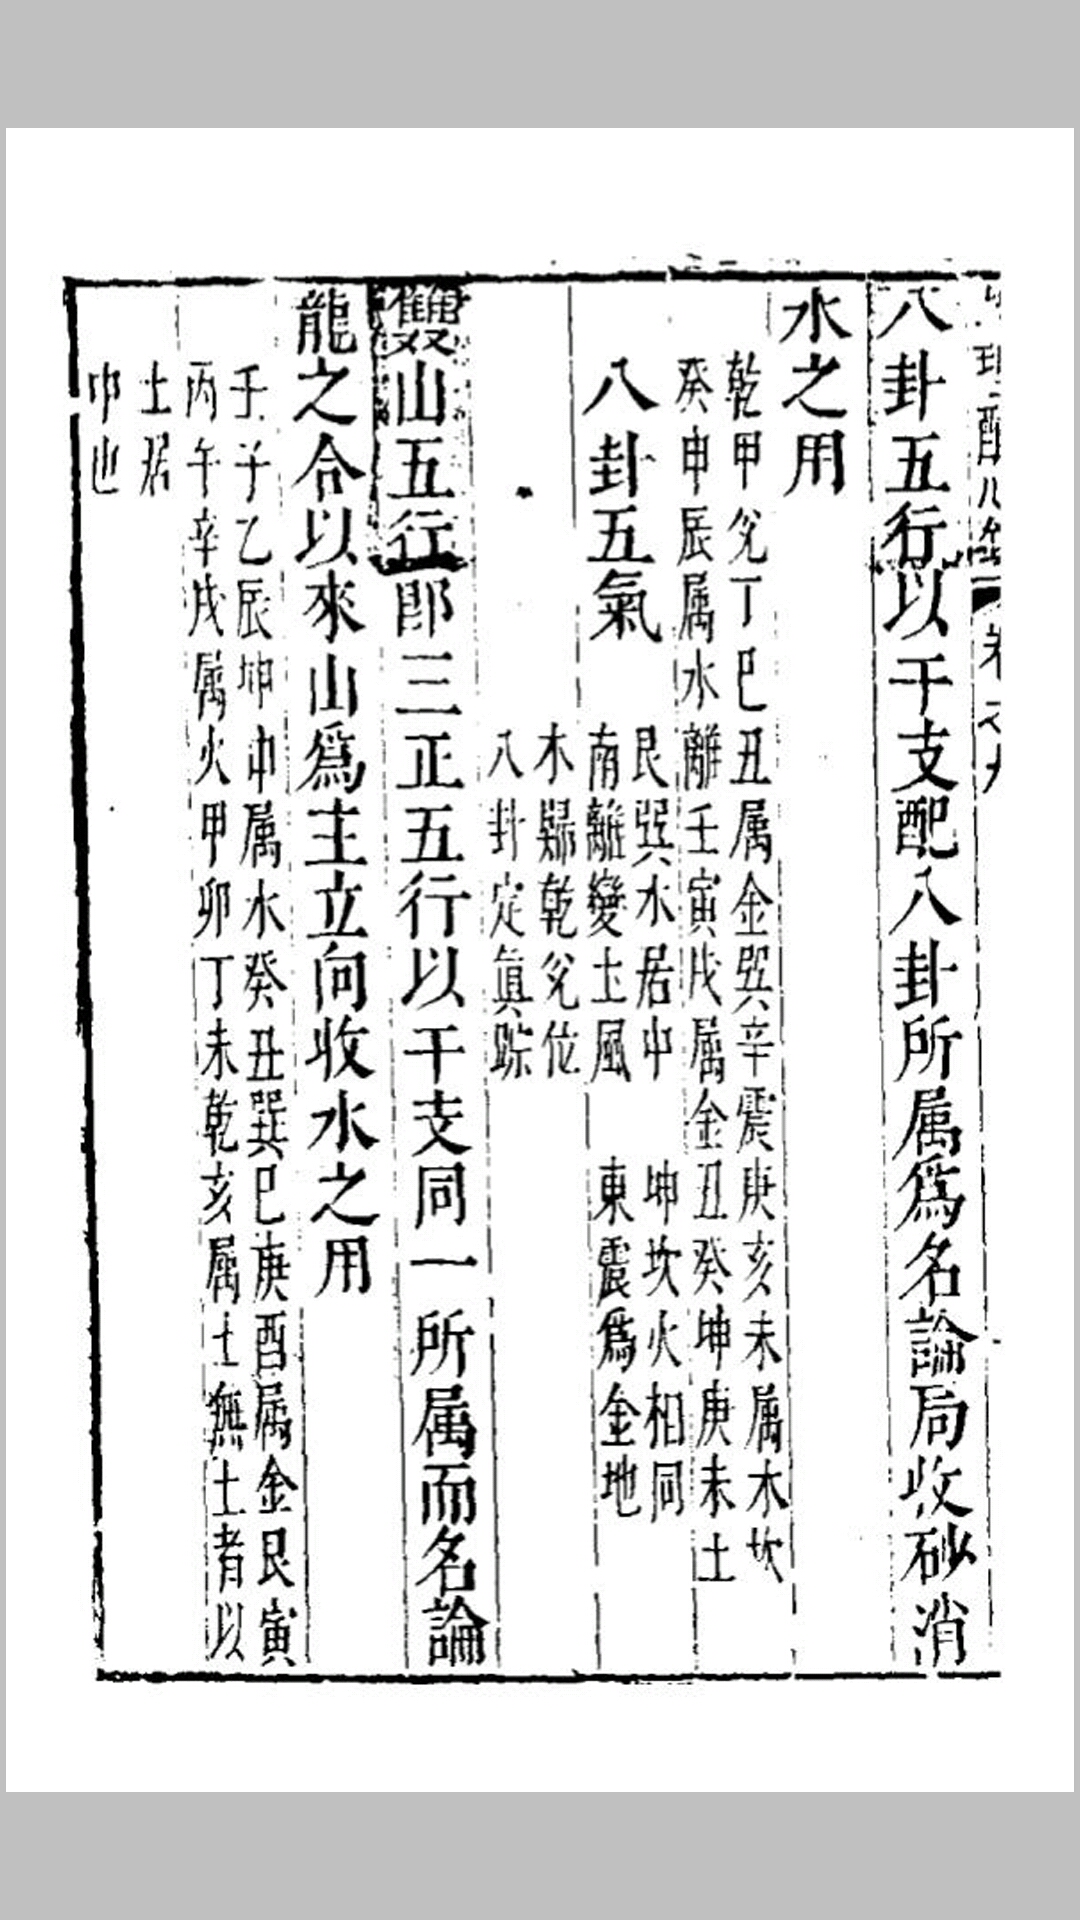 八卦五行以干支配八卦所属爲名論局收砂消
水之用
乾甲兌丁巳丑属金巽辛震庚亥未属木坎
癸申辰属水離壬寅戌属金丑癸坤庚未土
八卦五氣
艮巽水居中　坤坎火相同
南離變土風　東震爲金地
木歸乾兌位
八卦定眞踪
雙山五行即三正五行以干支同一所属而名論
龍之合以來山爲主立向收水之用
壬子乙辰坤申属水癸丑巽巳庚酉属金艮寅
丙午辛戌属火甲卯丁未乾亥属土無土者以
土居
中也